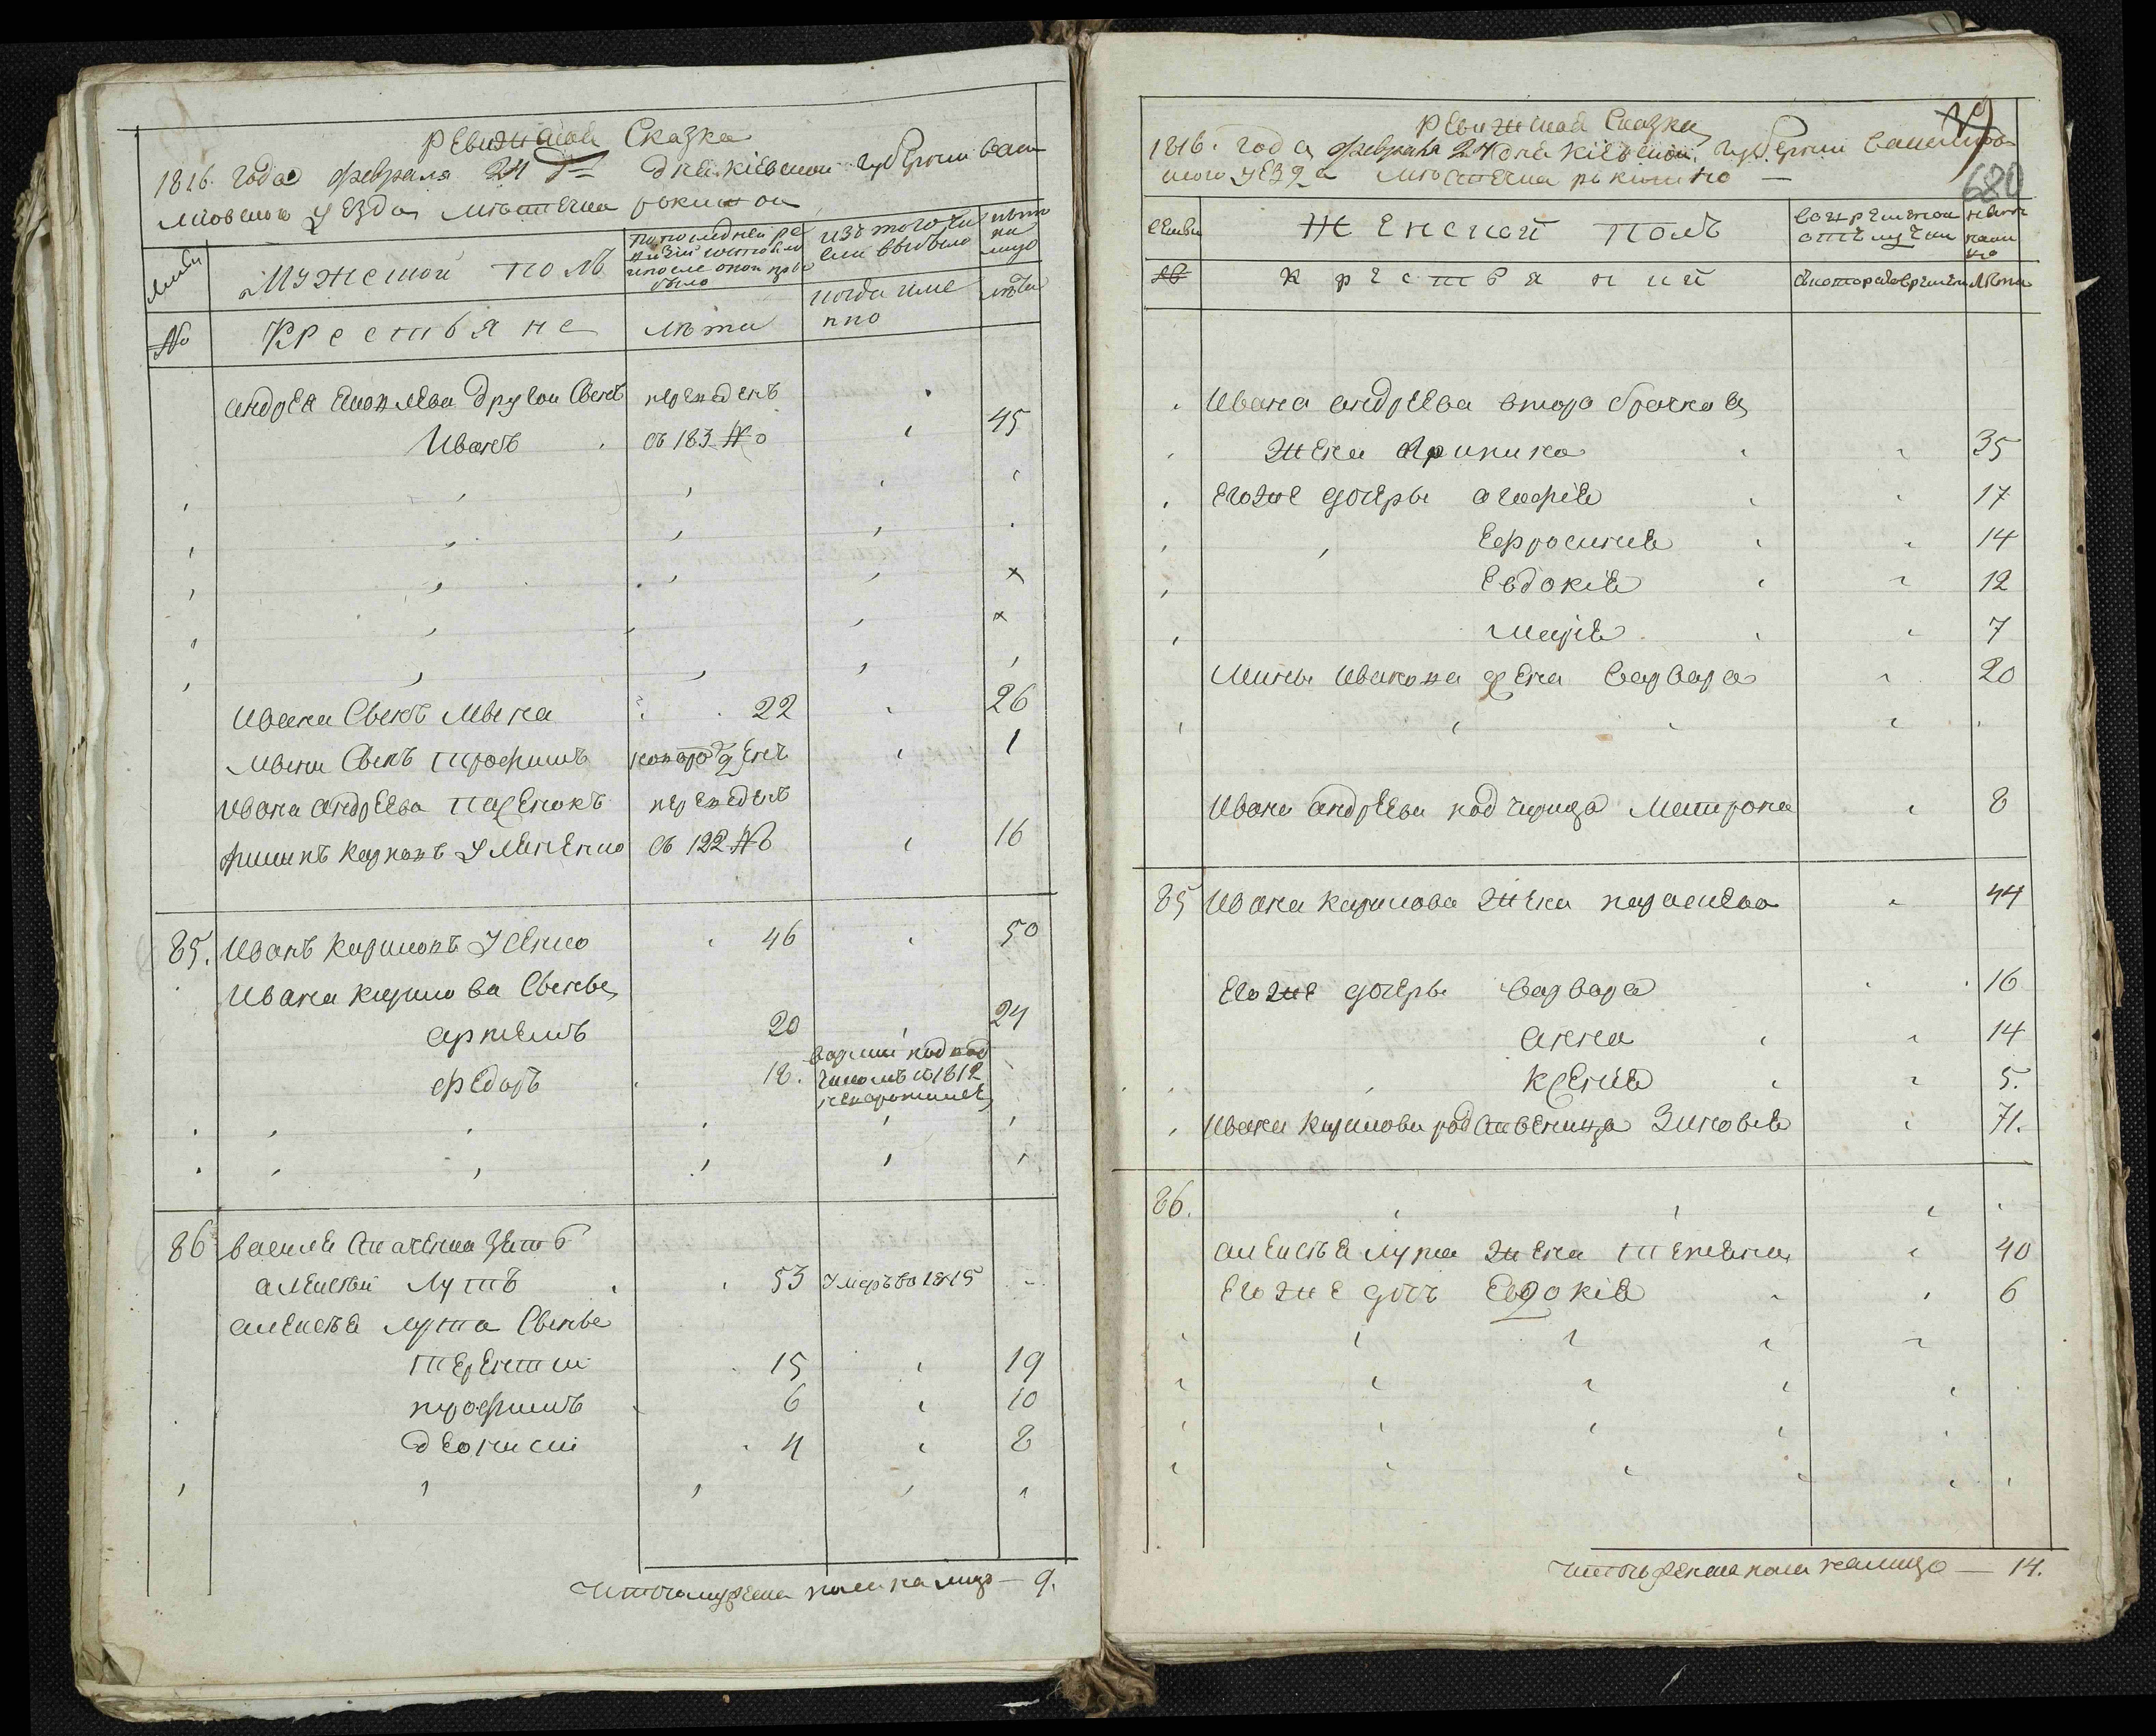 Ревижская Сказка
1816. года февраля 24 дня киевской губернии васи
лковского уезда местечка ракитои
семьи
Мужеской полъ
по последней ре
визии состояло
и после оной прибы
было
изъ того чи
сла выбыло
ныне
на
лицо
№
Крестьяне
лета
когда име
нно
лета
андрея Яковлева другои Сынъ переведенъ
Иванъ съ 183 № 45
Ивана Сынъ Мина 22 26
Мины Сынъ трофимъ новорожденъ 1
Ивана андреева пасенокъ переведенъ
филипъ карповъ Уманенко съ 122 № 16
85. Иванъ Кириловъ Усенко 46 50
Ивана кирилова Сынъве
артемъ 20 24
федоръ 18.
в 1812
86 василя Ткаченка зять
алексей Лутъ 53 Умеръ во 1815
алексея лута Сынъве
терентии 15 19
трофимъ 6 10
деониси 4 8
Итого мужеска пола на лицо — 9.
Ревижская Сказка
19
1816. года февраля 24 дня киевской губернии василков
ского уезда местечка ракитно
680
семьи
Женской полъ
во временной
отлучки
ныне
нали
цо
№
крестьянки
съ котораго времени
лета
Ивана андреева второ брачная
жена Ирина 35
его же дочеры агафия 17
Ефросиния 14
Евдокия 12
мария 7
Мины Иванова жена варвара 20
Ивана андреева подчерица Матрона 8
85 Ивана кирилова жена параскева 44
его же дочеры варвара 16
анна 14
ксения 5.
Ивана Кирилова родственица Зиновия 71.
86.
алексея лута жена Татияна 40
его же дочъ Евдокия 6
Итого женска пола налицо — 14.